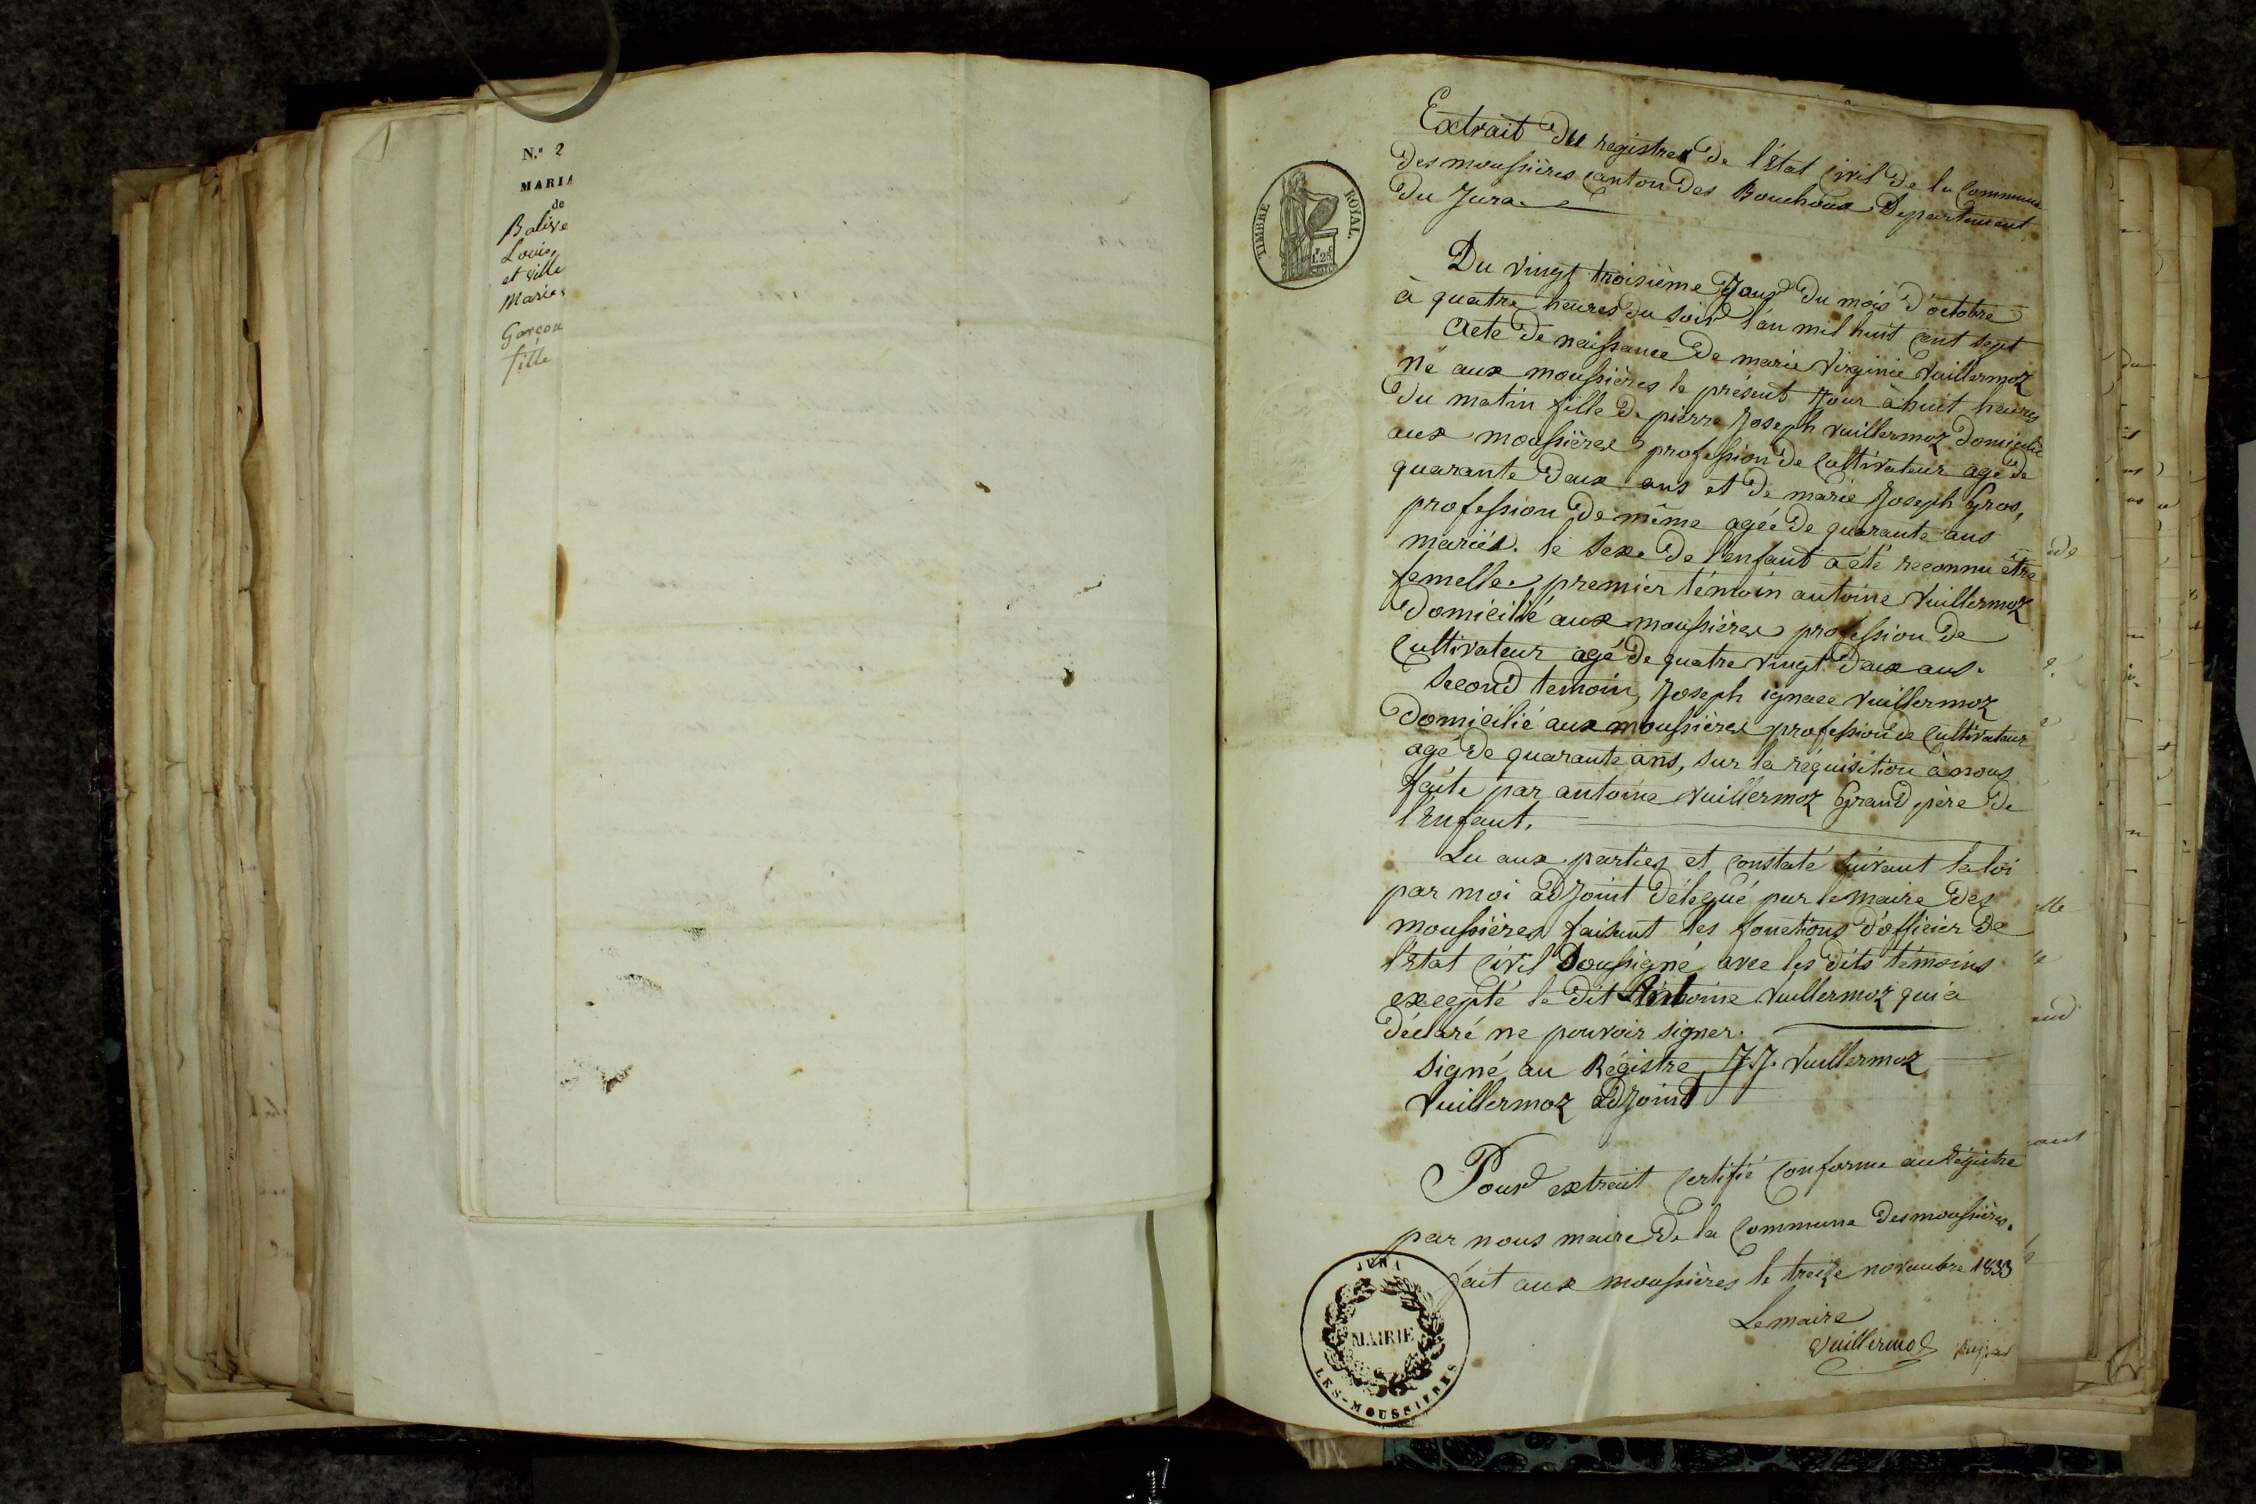 N.º 2
MARIA
de
Balive
Louis,
et Ville
Maries
Garçon
fille
TIMBRE ROYAL.
Extrait du registres de l'état Civil de la Commune
des moussières Canton des Bouchoux Departement
du Jura
Du vingt troisième Jour du mois d'octobre
à quatre heures du soir l'an mil huit cent sept
Acte de naissance de marie Virginie Vuillermoz
né aux moussières le présent Jour à huit heures
du matin fille de pierre Joseph vuillermoz domicilié
aux moussières profession de Cultivateur agé de
quarante deux ans et de marie Joseph Gros,
profession de même agée de quarante ans
mariés. le sexe de l'enfant a été reconnu être
femelle. premier témoin antoine Vuillermoz
domicilié aux moussières profession de
Cultivateur agé de quatre vingt deux ans.
second temoin, Joseph ignace vuillermoz
domicilié aux moussières profession de Cultivateur
agé de quarante ans, sur la réquisition à nous
faite par antoine vuillermoz Grand père de
l'Enfant.
Lu aux parties et Constaté suivant la loi
par moi adjoint délégué par le maire des
moussières faisant les fonctions d'officier de
l'état Civil Soussigné avec les dits témoins
excepté le dit Antoine Vuillermoz qui a
déclaré ne pouvoir signer.
signé au Régistre J.J. Vuillermoz
Vuillermoz adjoint
Pour extrait Certifié Conforme au Régistre
par nous maire de la Commune des moussières.
fait aux moussières le treize novembre 1833
Le maire
Vuillermoz
JURA
MAIRIE
LES-MOUSSIERES